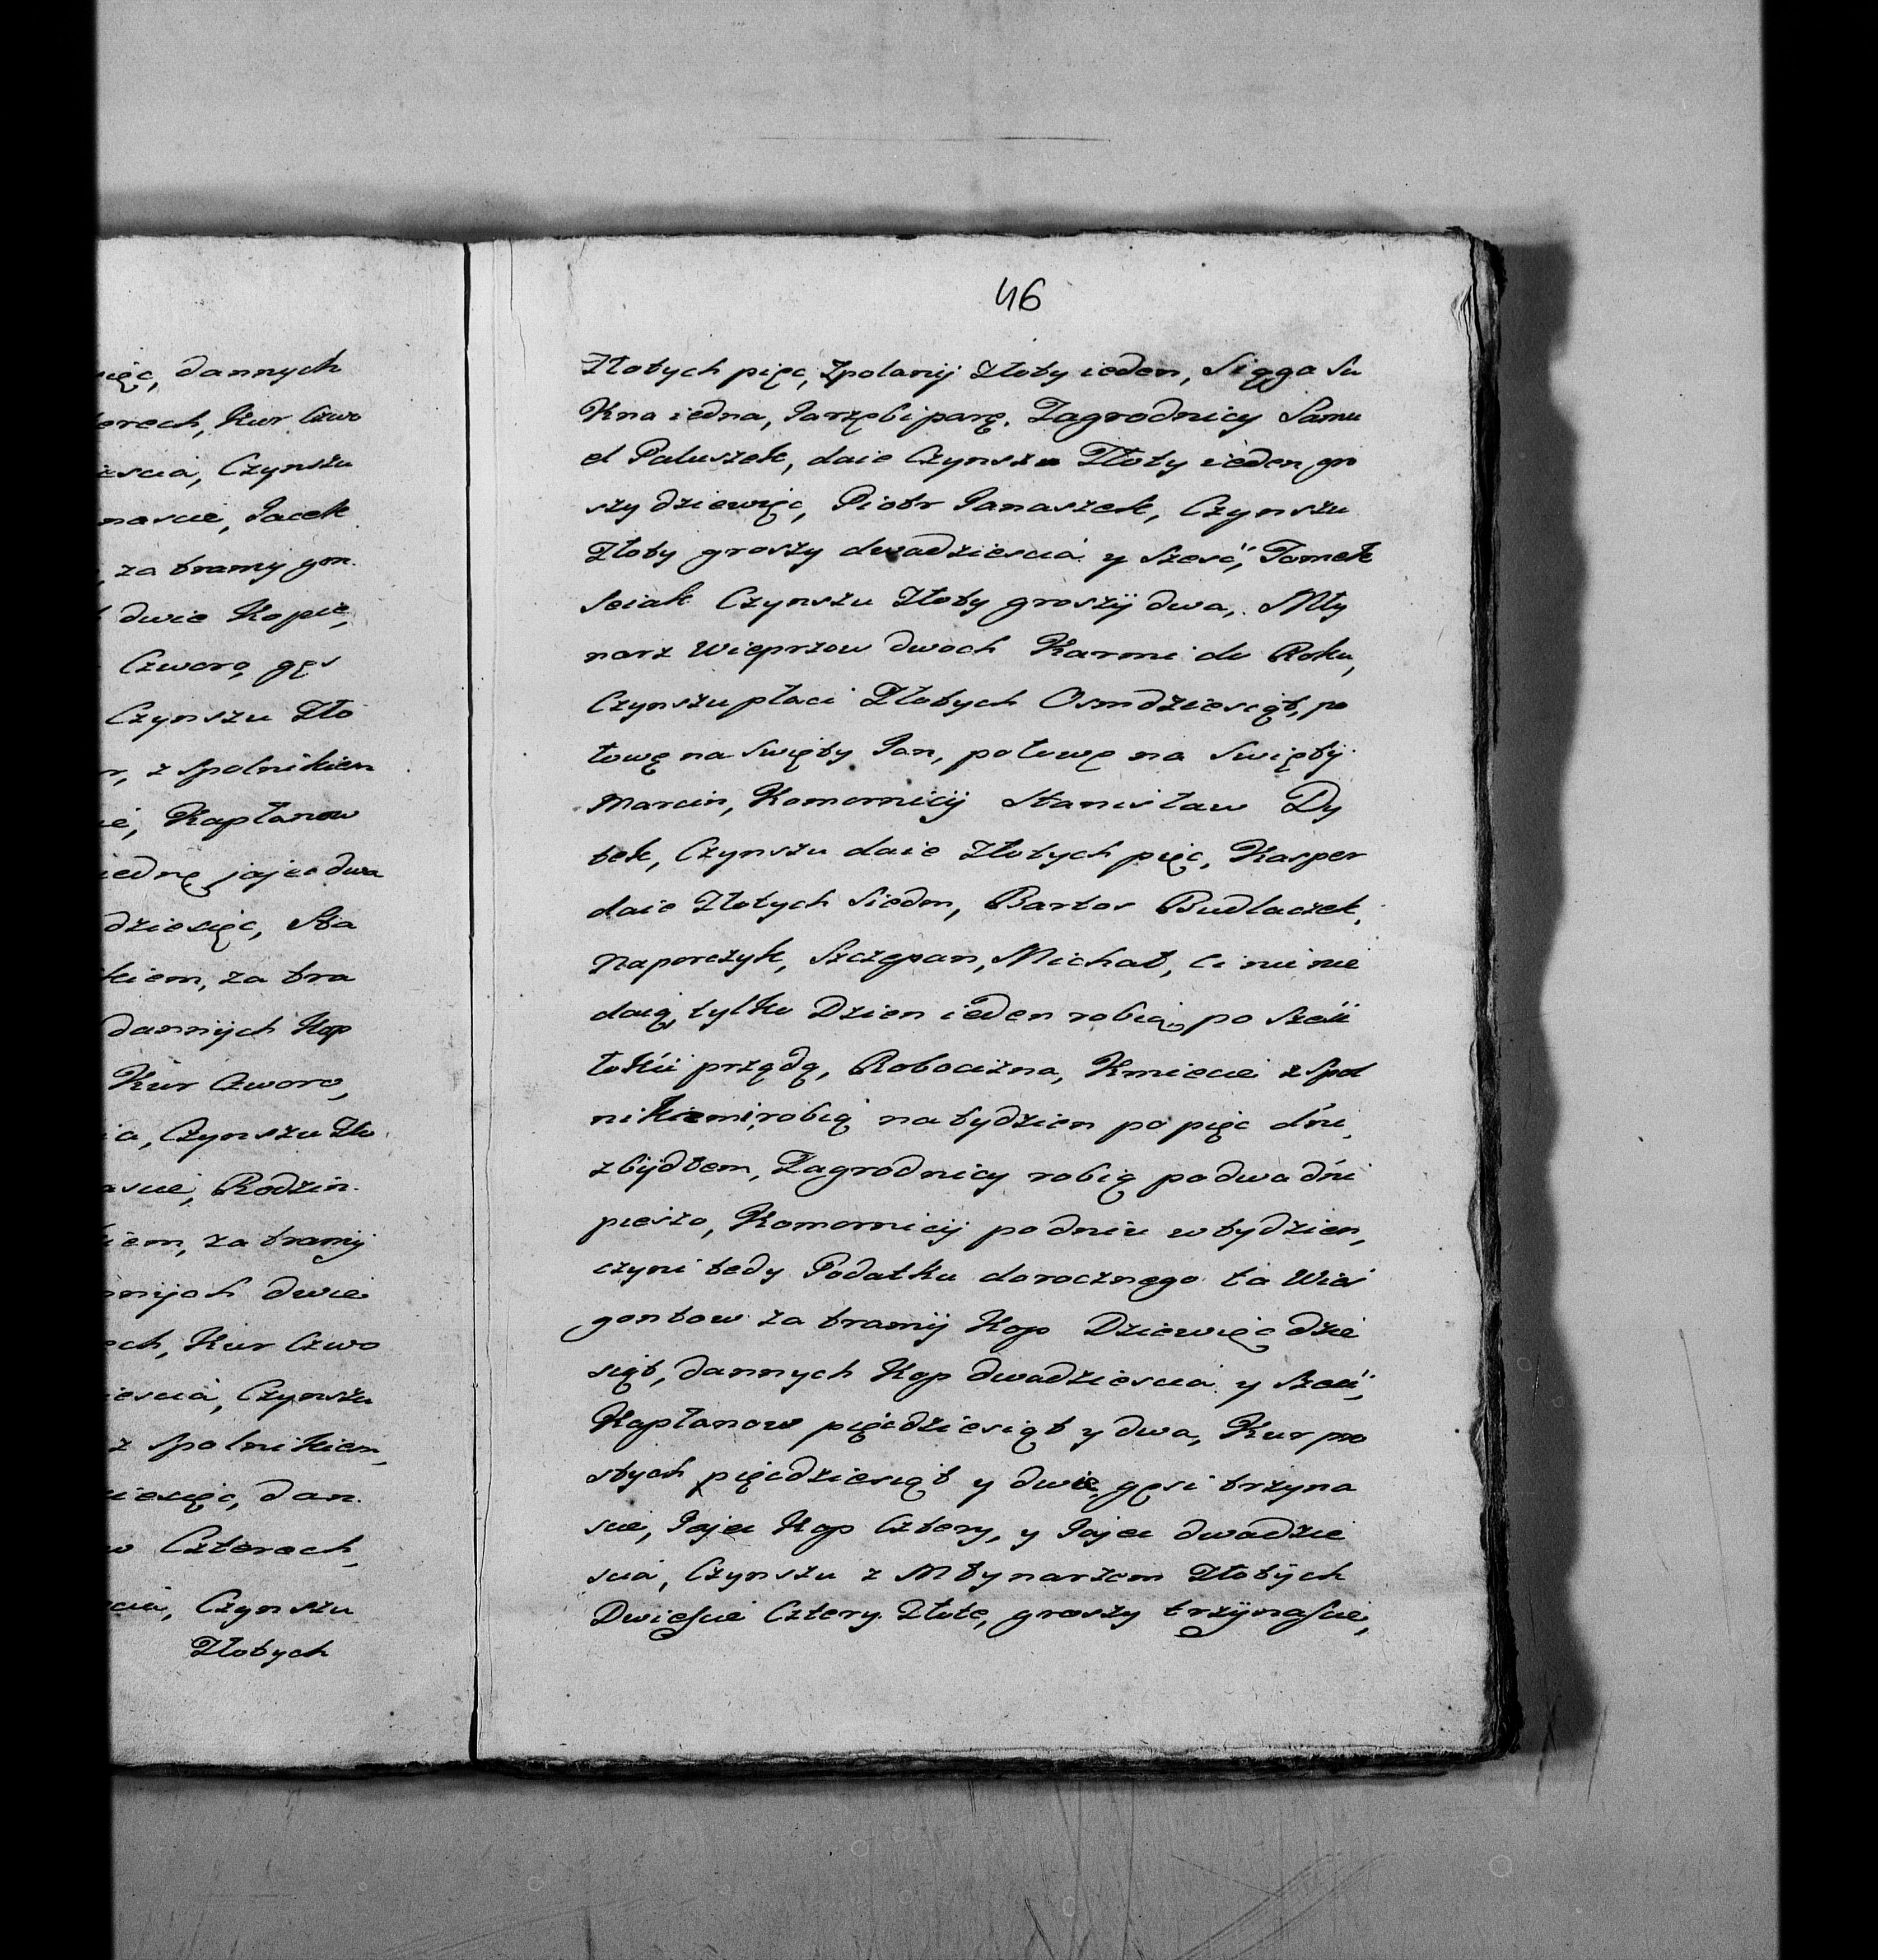 ięc, dannych
erech, Kur Czwo
escia, Czynszu
nascie, Jacek
, za tramy gon.
dwie Kopie,
Czworo, gęs
Czynszu Zło
z spolnikiem
ie, Kapłanow
iednę, jajec dwa
dziesięc, Sta
kiem, za tra
dannych Kop
Kur Czworo,
ia, Czynszu Zło
ascie, Rodzin.
iem, za tramy
nnych dwie
ech, Kur Czwo
iescia, Czynszu
z spolnikiem,
iesięc, dan.
w Czterech,
cia, Czynszu
Złotych
46
Złotych pięc, Zpolanij Złoty ieden, Sągga Su
Kna iedna, Jarzębi parę. Zagrodnicy Samu
el Paluszek, daie Czynszu Złoty ieden gro
szy dziewięc, Piotr Janaszek, Czynszu
Złoty groszy dwadziescia y szesć, Tomek
Sciak Czynszu Złoty groszÿ dwa, Mły
narz Wieprzow dwoch Karmi do Roku,
Czynszu płaci Złotych Osmdziesiąt, po
łowę na Swięty Jan, połowę na Swiętÿ
Marcin, Komornicÿ Stanisław Dy
tek, Czynszu daie Złotych pięc, Kasper
daie Złotych Siedm, Bartos Budlaczek,
Naporczyk, Szczepan, Michał, Ci nic nie
daią, tylko Dzien ieden robią, po Szesci
łokci przędą, Robocizna, Kmiecie z Spol
nikiemi, robią na tydzien po pięc dni,
z bÿdłem, Zagrodnicy robią po dwa dni
pieszo, Komornicÿ po dniu w tydzien,
czyni tedy Podatku dorocznego ta Wies
gontow za tramÿ Kop Dziewięcdzie
siąt, dannych Kop dwadziescia y szesć,
Kapłanow pięcdziesiąt y dwa, Kur pro
stych pięcdziesiąt y dwie, gęsi trzyna
scie, Jajec Kop Cztery, y Jajec dwadzie
scia, Czynszu z Młynarzem Złotÿch
Dwiescie Cztery Złote, groszy trzÿnascie,